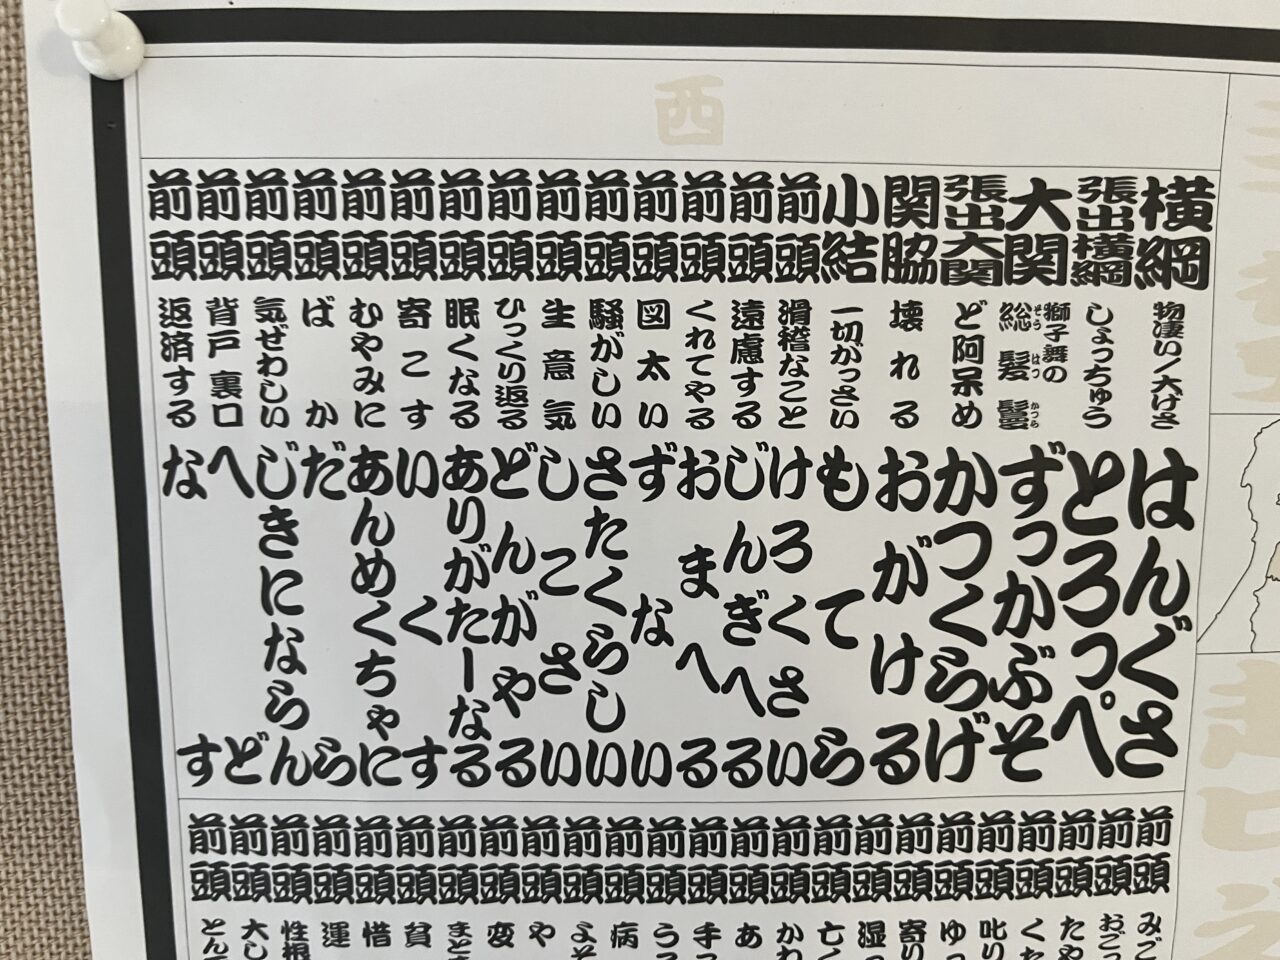 西
横綱 物凄い/大げさ はんぐさ
張出横綱 しょっちゅう とろっぺ
大関 獅子舞の総髪鬘 ぞう はつ かつら ずっかぶそ
張出大関 ど阿呆め かつくらげ
関脇 壊れる おがける
小結 一切かっさい もてら
前頭 滑稽なこと けろくさい
前頭 遠慮する じんぎへる
前頭 くれてやる おまへる
前頭 図太い ずない
前頭 騒がしい さたくらしい
前頭 生意気 しこさい
前頭 ひっくり返る どんがやる
前頭 眠くなる ありがたーなる
前頭 寄こす いくす
前頭 むやみに あんめくちゃに
前頭 ばか だら
前頭 気ぜわしい じきにならん
前頭 背戸裏口 へど
前頭 返済する なす
前頭 みご
前頭 おご
前頭 たや
前頭 くた
前頭 叱り
前頭 ゆっ
前頭 寄り
前頭 湿っ
前頭 亡く
前頭 かわ
前頭 あ
前頭 手
前頭 う
前頭 病
前頭 よそ
前頭 や
前頭 変
前頭 まど
前頭 貧
前頭 惜
前頭 運
前頭 性根
前頭 大し
前頭 とん